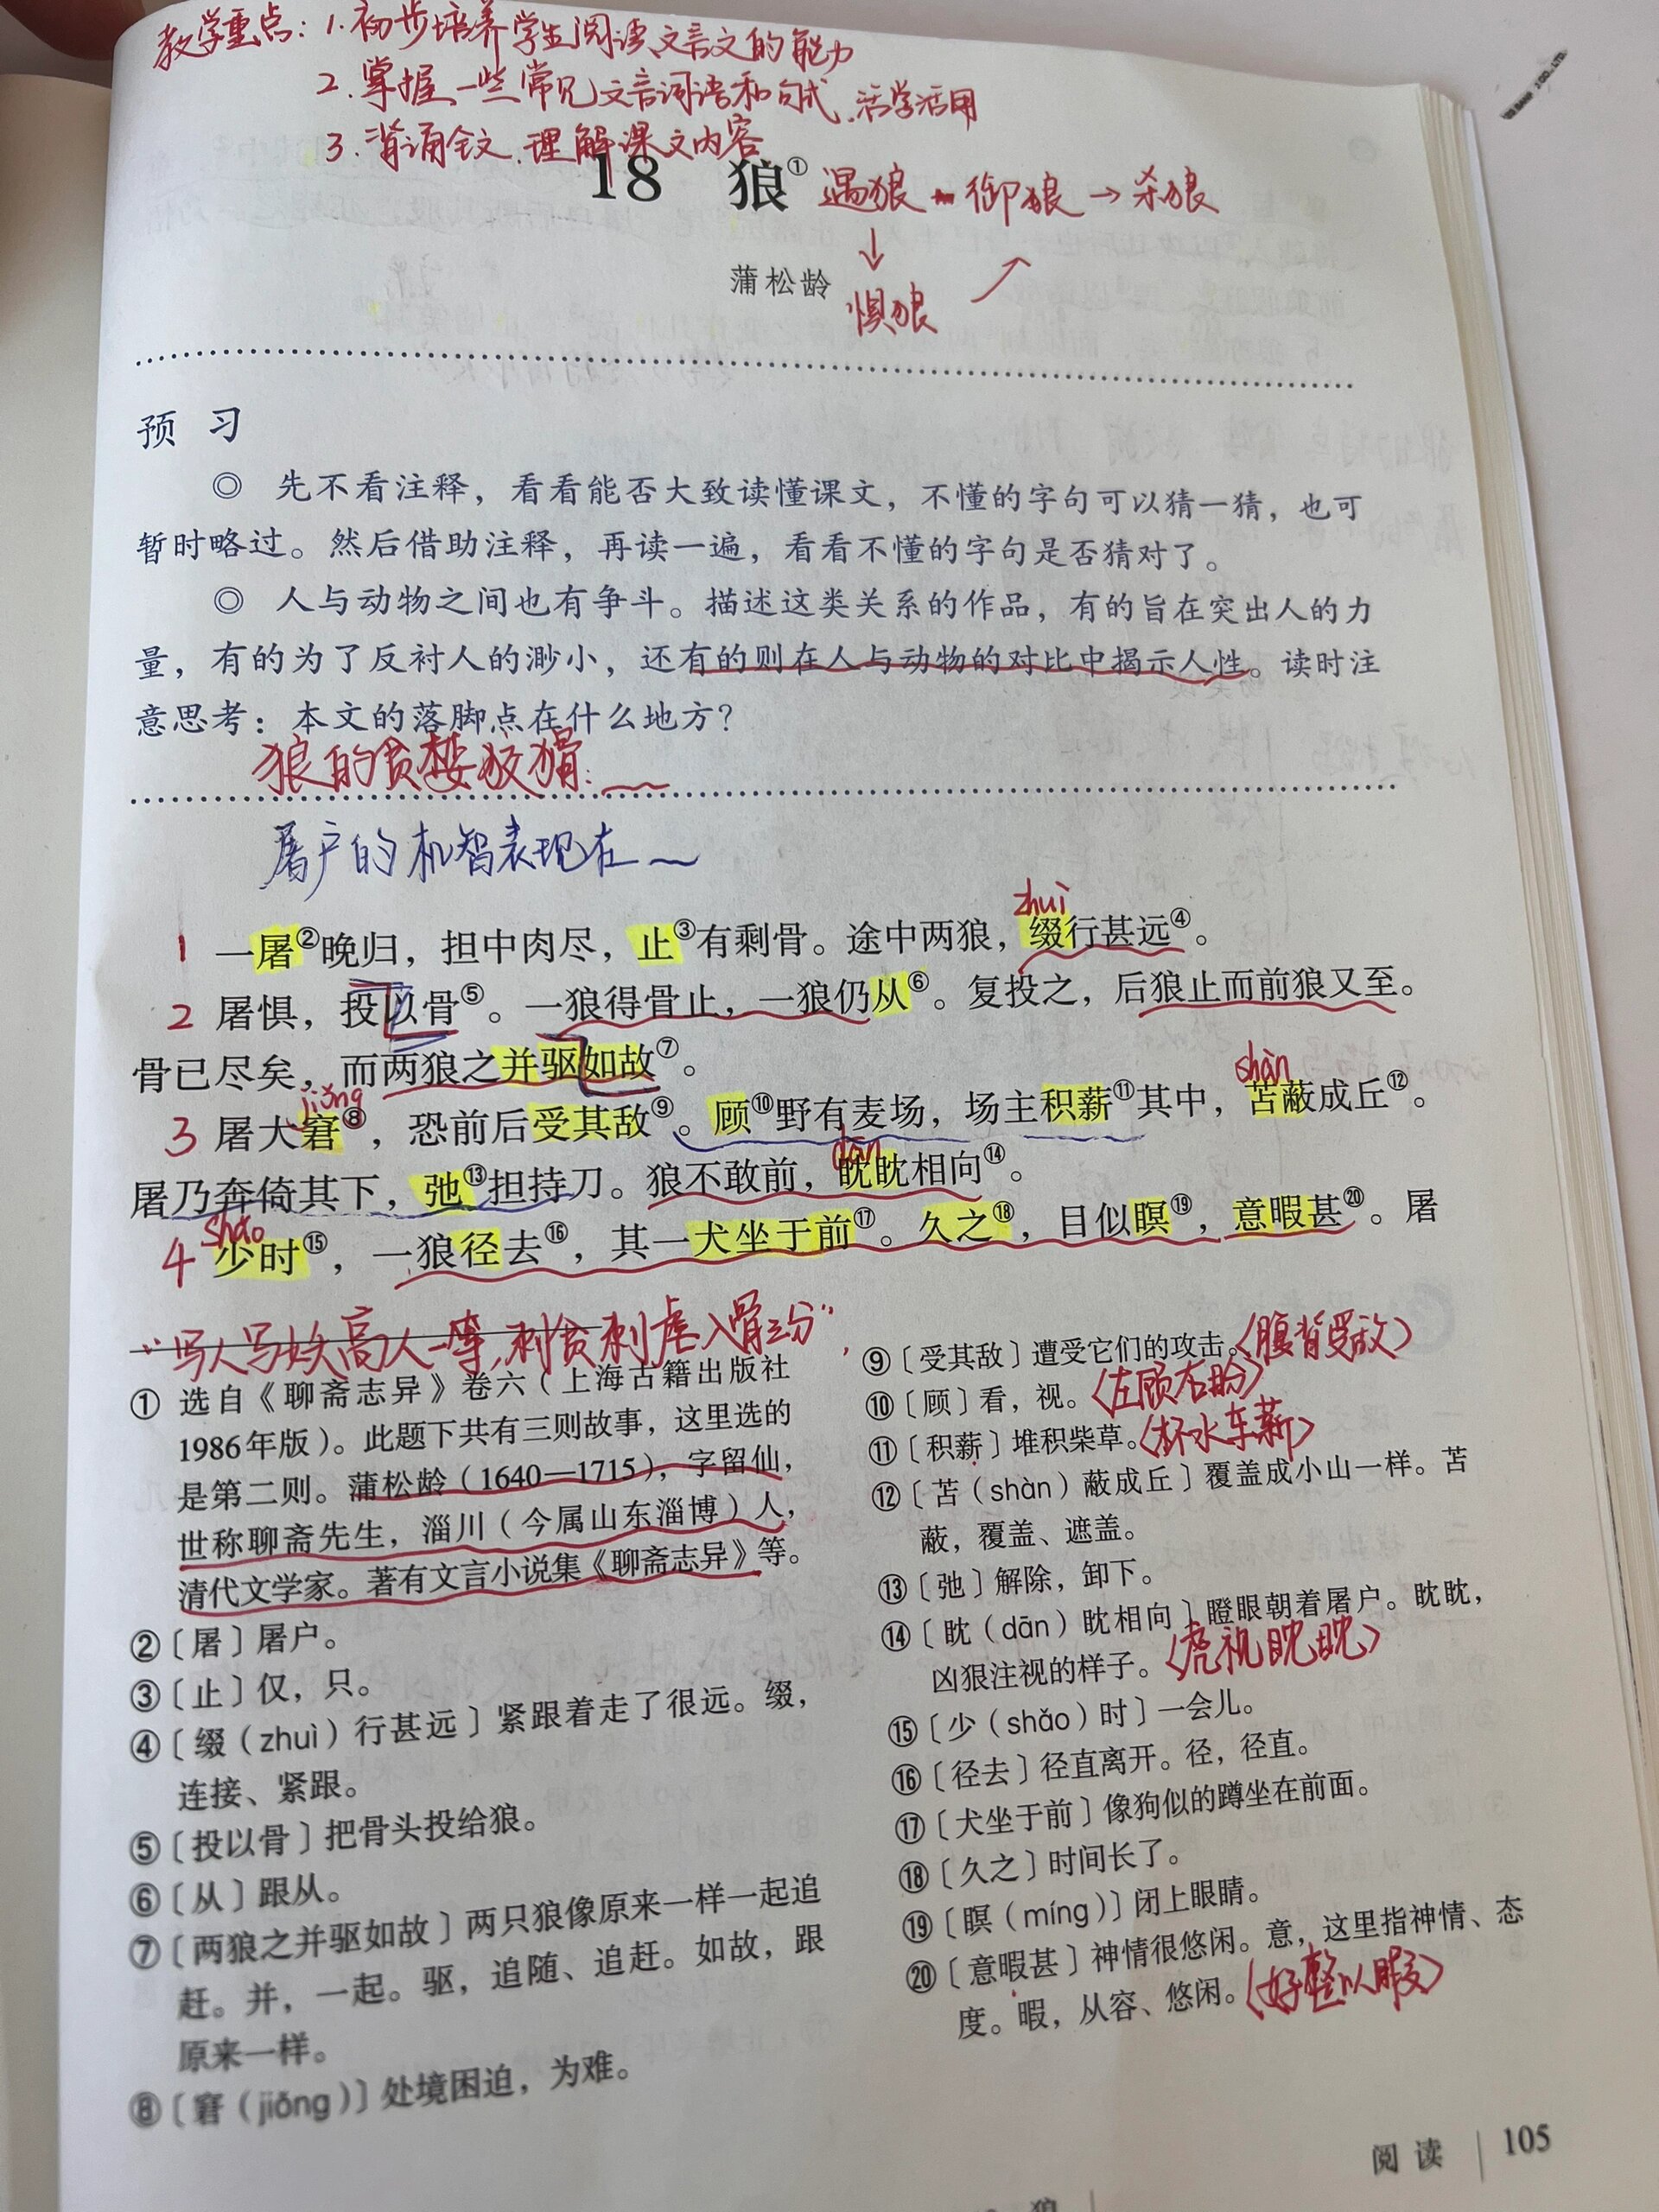 教学重点：1.初步培养学生阅读文言文的能力
2.掌握一些常见文言词语和句式.活学活用
3.背诵全文.理解课文内容
18 狼① 遇狼-御狼→杀狼
↓
蒲松龄 惧狼
预 习
◎ 先不看注释，看看能否大致读懂课文，不懂的字句可以猜一猜，也可
暂时略过。然后借助注释，再读一遍，看看不懂的字句是否猜对了。
◎ 人与动物之间也有争斗。描述这类关系的作品，有的旨在突出人的力
量，有的为了反衬人的渺小，还有的则在人与动物的对比中揭示人性。读时注
意思考：本文的落脚点在什么地方？
狼的贪婪狡猾：
屠户的机智表现在
zhuì
1 一屠②晚归，担中肉尽，止③有剩骨。途中两狼，缀行甚远④。
2 屠惧，投以骨⑤。一狼得骨止，一狼仍从⑥。复投之，后狼止而前狼又至。
骨已尽矣，而两狼之并驱如故⑦。
jiǒng shàn
3 屠大窘⑧，恐前后受其敌⑨。顾⑩野有麦场，场主积薪⑪其中，苫蔽成丘⑫。
dān
屠乃奔倚其下，弛⑬担持刀。狼不敢前，眈眈相向⑭。
shǎo
4 少时⑮，一狼径去⑯，其一犬坐于前⑰。久之⑱，目似瞑⑲，意暇甚⑳。屠
“写人写妖高人一等，刺贪刺虐入骨三分”
① 选自《聊斋志异》卷六（上海古籍出版社
1986年版）。此题下共有三则故事，这里选的
是第二则。蒲松龄（1640—1715），字留仙，
世称聊斋先生，淄川（今属山东淄博）人，
清代文学家。著有文言小说集《聊斋志异》等。
②〔屠〕屠户。
③〔止〕仅，只。
④〔缀（zhuì）行甚远〕紧跟着走了很远。缀，
连接、紧跟。
⑤〔投以骨〕把骨头投给狼。
⑥〔从〕跟从。
⑦〔两狼之并驱如故〕两只狼像原来一样一起追
赶。并，一起。驱，追随、追赶。如故，跟
原来一样。
⑧〔窘（jiǒng）〕处境困迫，为难。
⑨〔受其敌〕遭受它们的攻击。〈腹背受敌〉
⑩〔顾〕看，视。〈左顾右盼〉
⑪〔积薪〕堆积柴草。〈杯水车薪〉
⑫〔苫（shàn）蔽成丘〕覆盖成小山一样。苫
蔽，覆盖、遮盖。
⑬〔弛〕解除，卸下。
⑭〔眈（dān）眈相向〕瞪眼朝着屠户。眈眈，
凶狠注视的样子。〈虎视眈眈〉
⑮〔少（shǎo）时〕一会儿。
⑯〔径去〕径直离开。径，径直。
⑰〔犬坐于前〕像狗似的蹲坐在前面。
⑱〔久之〕时间长了。
⑲〔瞑（míng）〕闭上眼睛。
⑳〔意暇甚〕神情很悠闲。意，这里指神情、态
度。暇，从容、悠闲。〈好整以暇〉
阅 读 105
狼